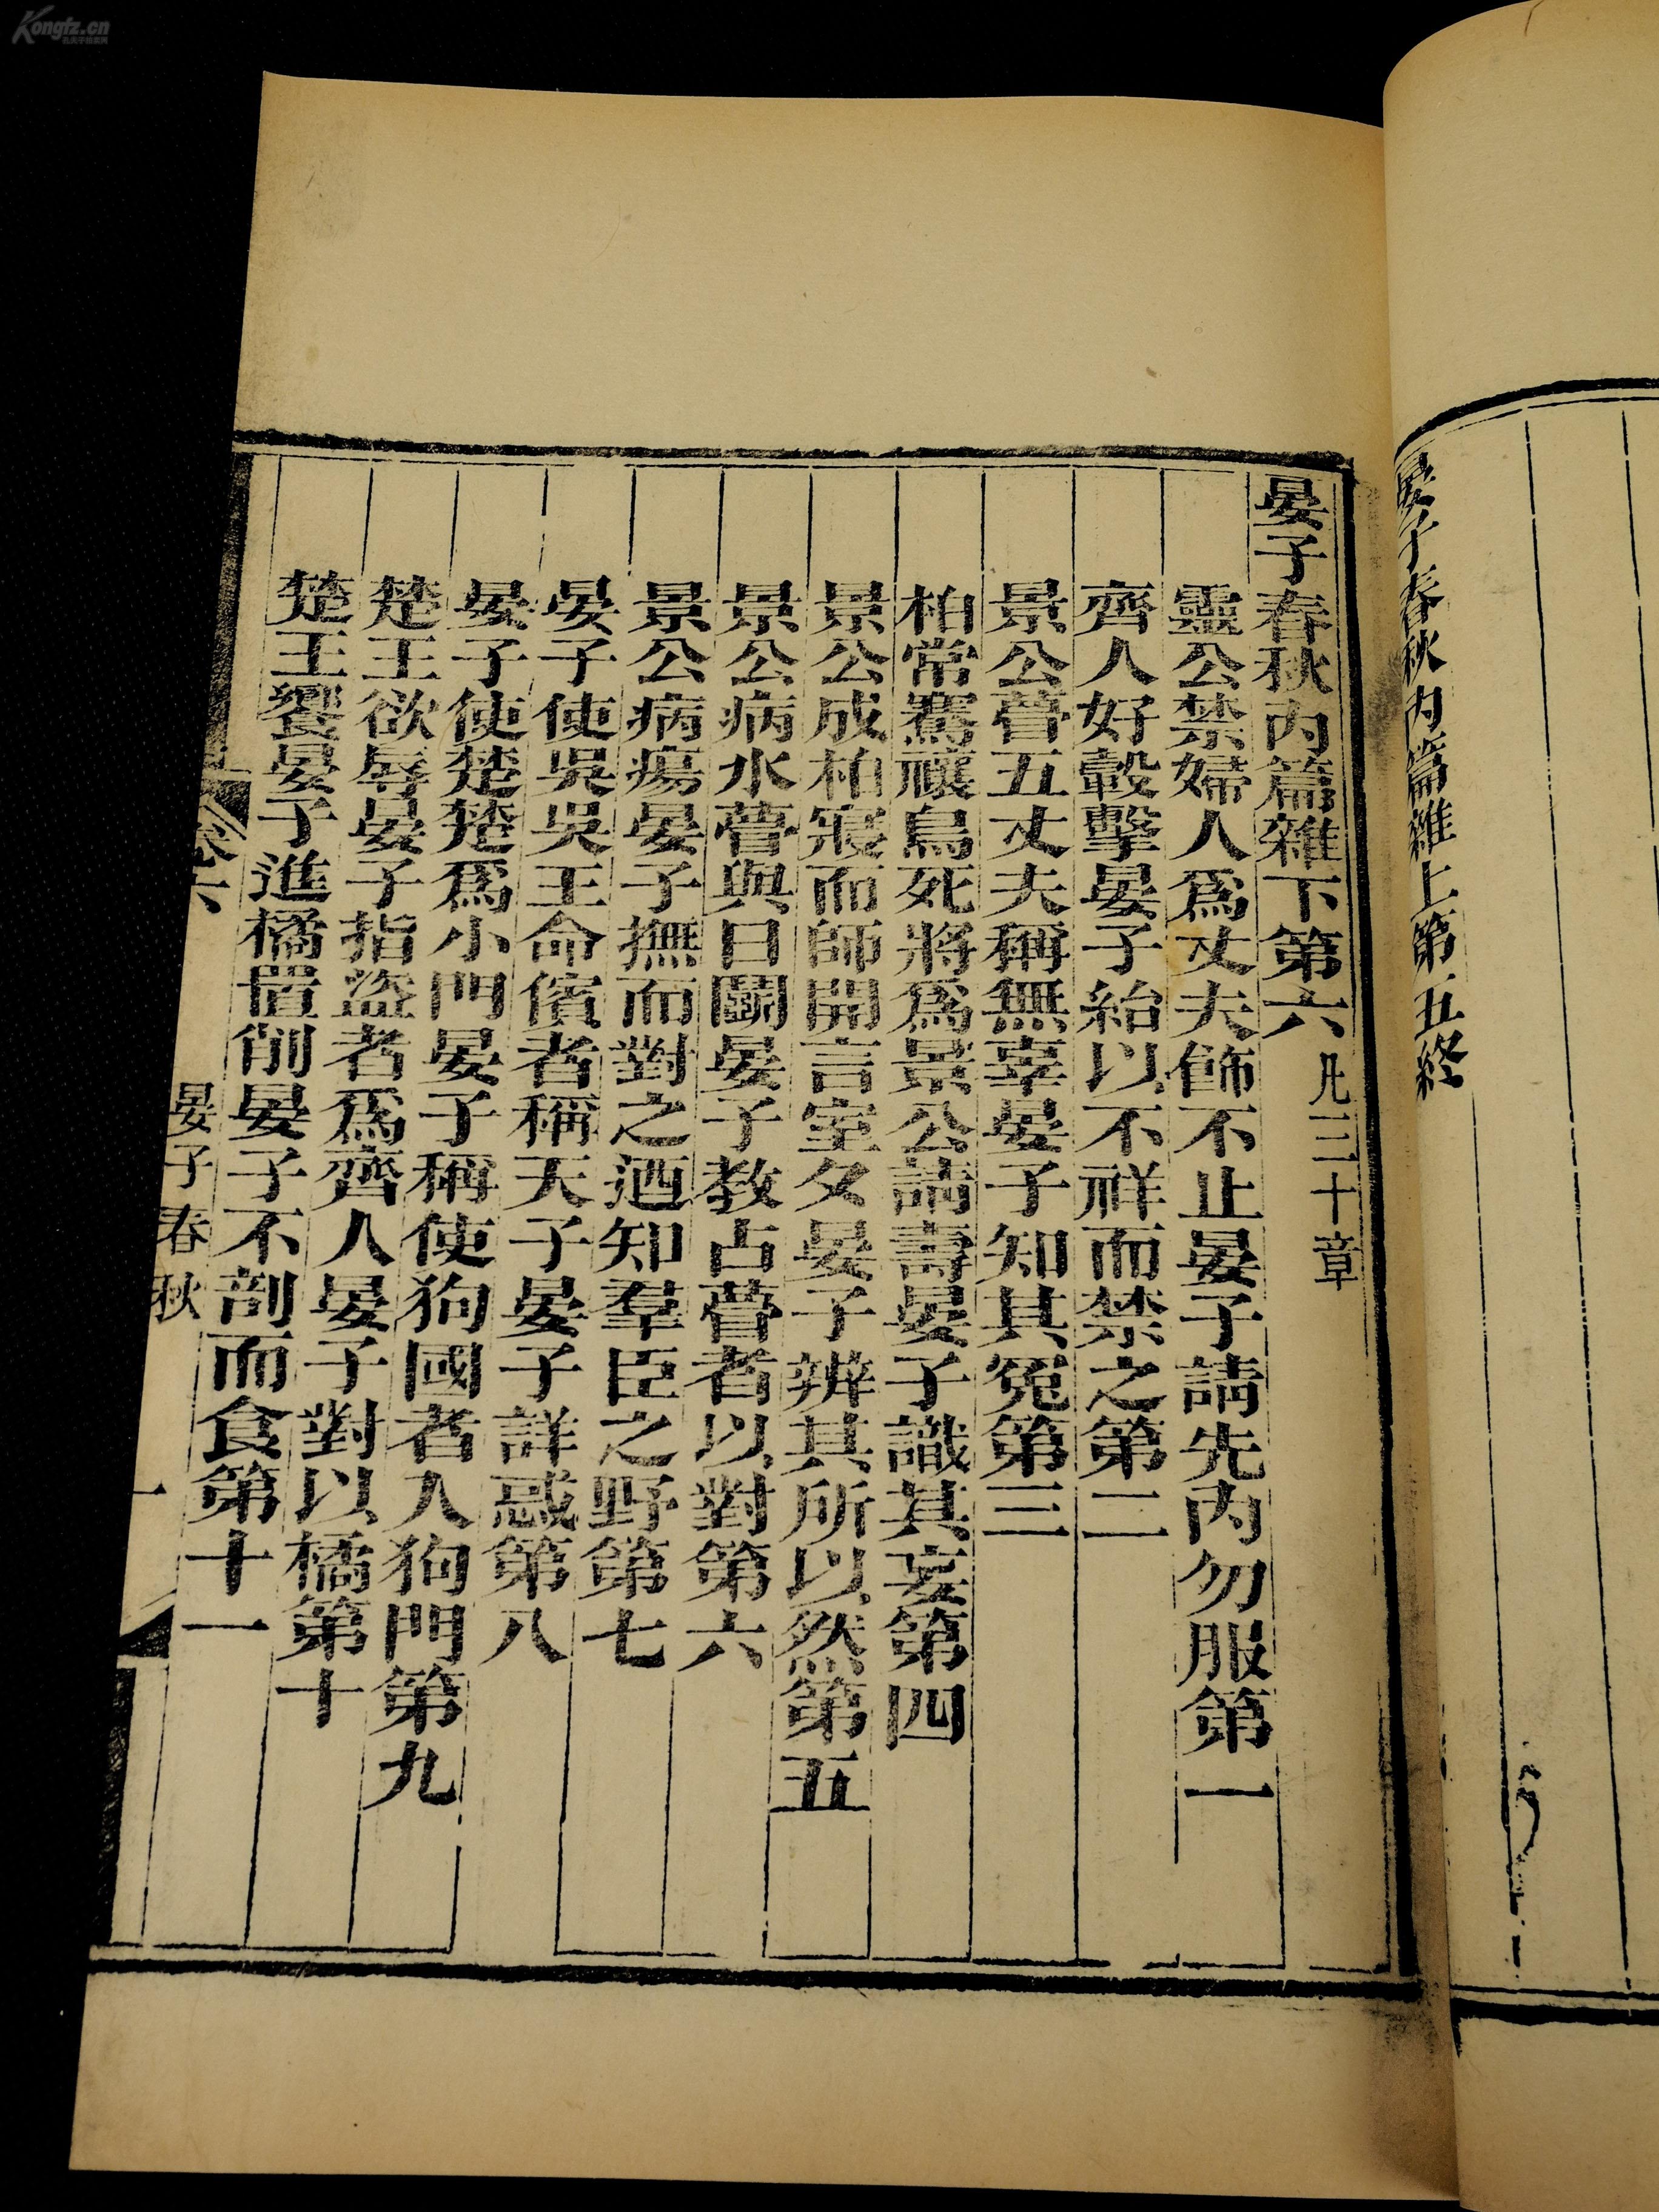 Kongfz.cn
晏子春秋內篇雜上第五終
晏子春秋內篇雜下第六 凡三十章
靈公禁婦人爲丈夫飾不止晏子請先內勿服第一
齊人好轂擊晏子紿以不祥而禁之第二
景公瞢五丈夫稱無辜晏子知其冤第三
柏常騫禳鳥死將爲景公請壽晏子識其妄第四
景公成柏寢而師開言室夕晏子辨其所以然第五
景公病水瞢與日鬬晏子教占瞢者以對第六
景公病瘍晏子撫而對之迺知羣臣之野第七
晏子使吳吳王命儐者稱天子晏子詳惑第八
晏子使楚楚爲小門晏子稱使狗國者入狗門第九
楚王欲辱晏子指盜者爲齊人晏子對以橘第十
楚王饗晏子進橘置削晏子不剖而食第十一
卷六 晏子春秋 一